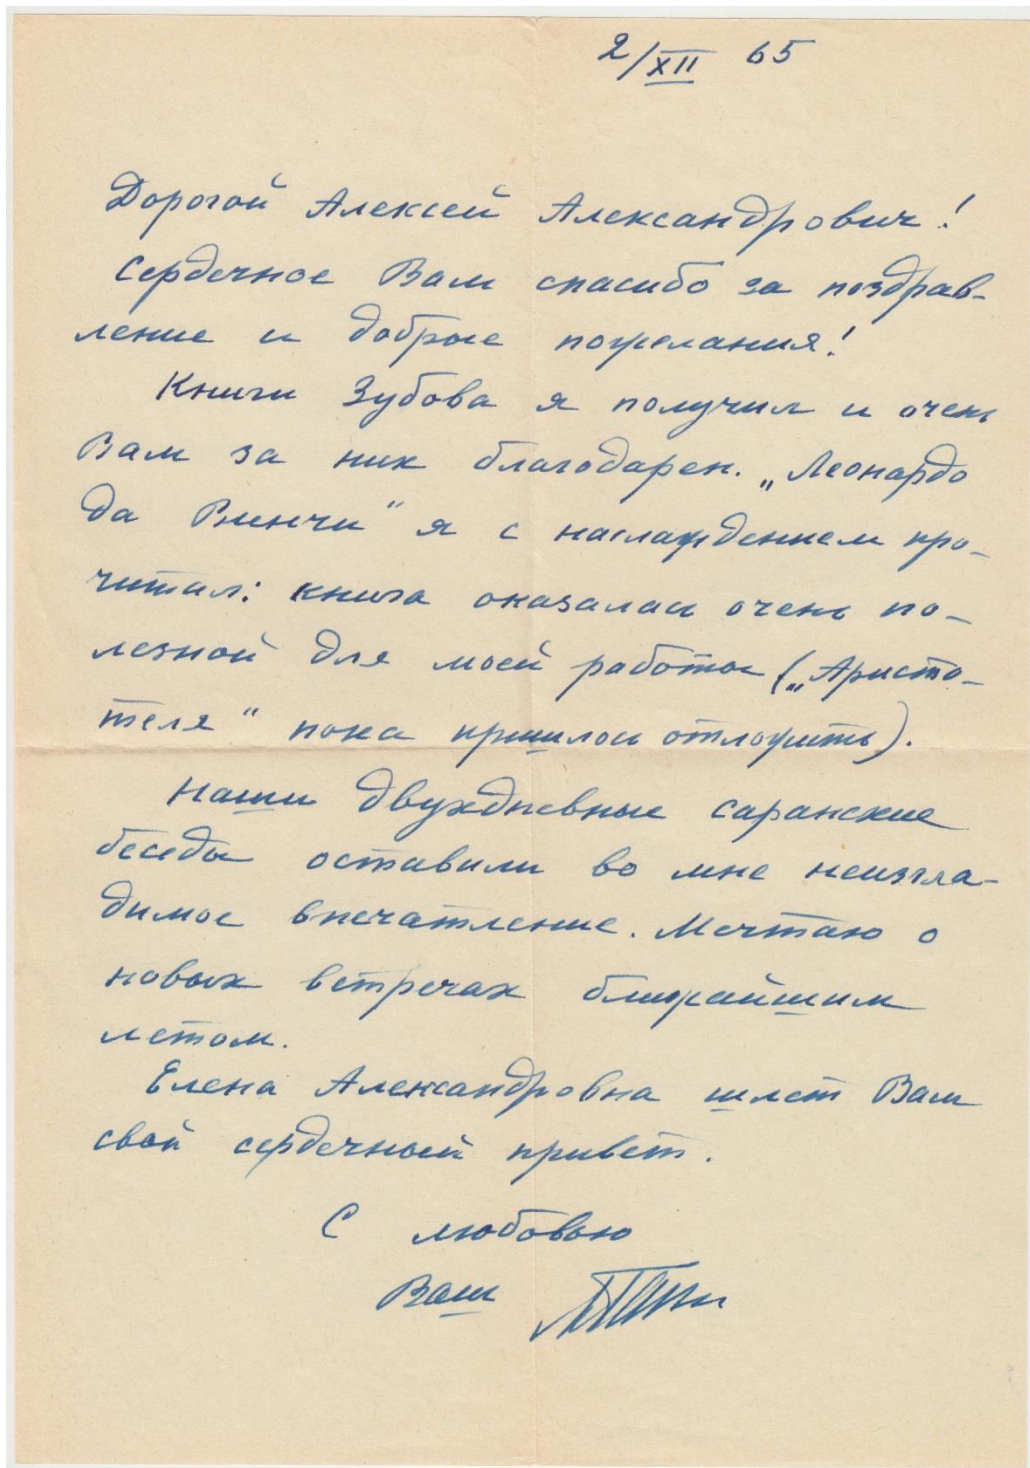 2/XII 65
Дорогой Алексей Александрович!
Сердечное Вам спасибо за поздрав-
ление и добрые пожелания!
Книги Зубова я получил и очень
Вам за них благодарен. „Леонардо
да Винчи“ я с наслаждением про-
читал: книга оказалась очень по-
лезной для моей работы („Аристо-
теля“ пока пришлось отложить).
Наши двухдневные саранские
беседы оставили во мне неизгла-
димое впечатление. Мечтаю о
новых встречах ближайшим
летом.
Елена Александровна шлет Вам
свой сердечный привет.
С любовью
Ваш